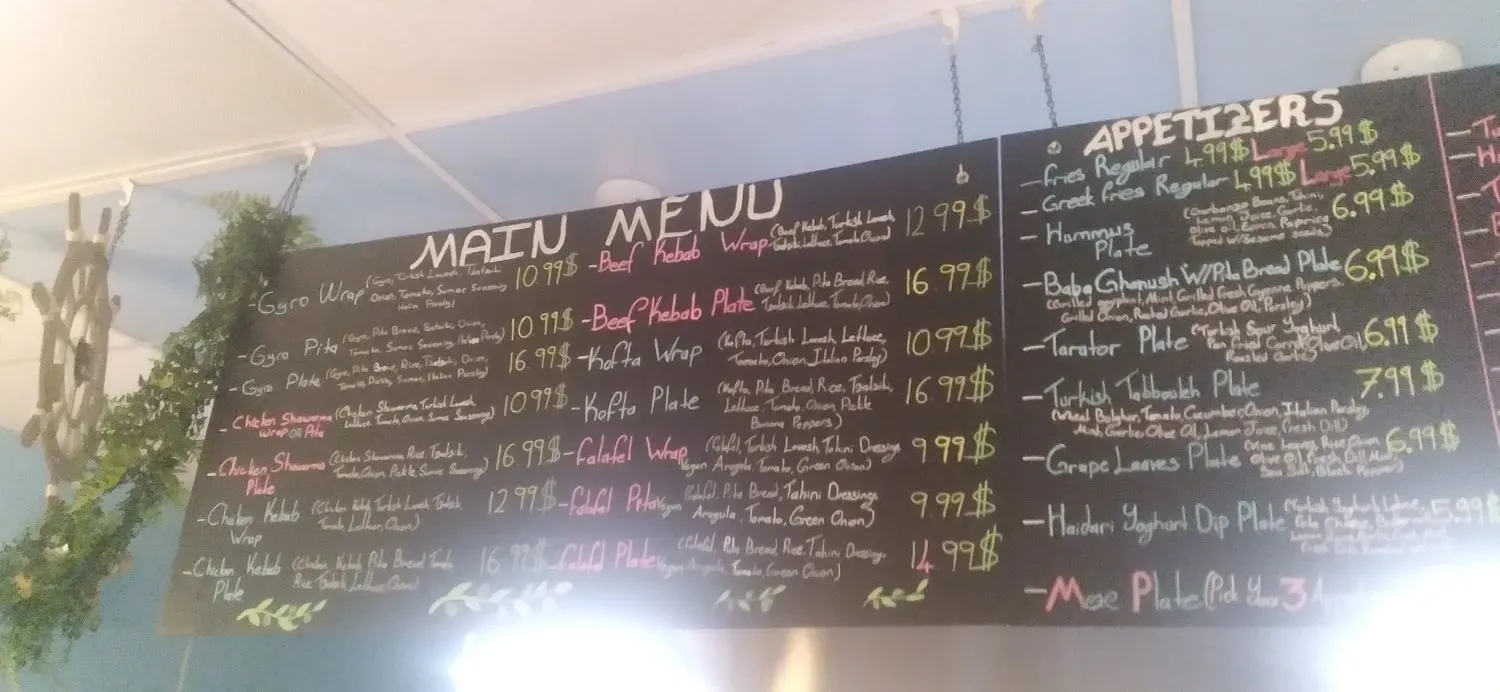 MAIN MENU
- Gyro Wrap (Gyro, Turkish Lavash, Tzatziki 10.99$
Onion, Tomato, Sumac Seasoning
- Gyro Pita (Gyro, Pita Bread, Onion, 10.99$
Tomato, Sumac Seasoning, Italian Parsley)
- Gyro Plate (Gyro, Pita Bread, Rice, Onion, 16.99$
- Chicken Shawarma (Chicken Shawarma Turkish Lavash 10.99$
Wrap OR Pita Lettuce, Tomato, Onion, Sumac Seasoning)
- Chicken Shawarma (Chicken Shawarma, Rice, 16.99$
Plate Tomato, Onion, Pickle, Sumac Seasoning)
- Chicken Kebab (Chicken Kebab, Turkish Lavash, 12.99$
Wrap Tomato, Lettuce, Onion)
- Chicken Kebab (Chicken Kebab, Pita Bread 16.99$
Plate Rice, Lettuce, Onion)
- Beef Kebab Wrap (Beef Kebab, Turkish Lavash 12 99$
Lettuce, Tomato, Onion)
- Beef Kebab Plate (Beef Kebab, Pita Bread Rice, 16.99$
Lettuce, Tomato, Onion)
- Kofta Wrap (Kofta, Turkish Lavash, Lettuce, 10 99$
Tomato, Onion, Italian Parsley)
- Kofta Plate (Kofta, Pita Bread, Rice, Tzatziki, 16 99$
Lettuce, Tomato, Onion, Pickle
Banana Peppers)
- Falafel Wrap (Falafel, Turkish Lavash, Tahini Dressing, 9 99$
Vegan Arugola, Tomato, Green Onion)
- Falafel Pita Vegan (Falafel, Pita Bread, Tahini Dressing, 9.99$
Arugola, Tomato, Green Onion)
- Falafel Plate Vegan (Falafel, Pita Bread, Rice, Tahini Dressing, 14 99$
Arugola, Tomato, Green Onion)
APPETIZERS
- Fries Regular 4.99$ Large 5.99$
- Greek Fries Regular 4.99$ Large 5.99$
- Hummus (Garbanzo Beans, Tahini, 6.99$
Plate Lemon Juice, Garlic,
Olive oil, Cumin, Paprika
Topped W/Sesame Seeds)
- Baba Ghanush W/Pita Bread Plate 6.99$
(Grilled eggplant, Mint, Grilled Fresh Cayenne Peppers,
Grilled Onion, Roasted Garlic, Olive Oil, Parsley)
- Tarator Plate (Turkish Sour Yoghurd 6.99$
Pan Fried Carrot, Olive Oil,
Roasted Garlic)
- Turkish Tabbouleh Plate 7.99$
Bulghur, Tomato, Cucumber, Onion, Italian Parsley,
Mint, Garlic, Olive Oil, Lemon Juice, Fresh Dill)
- Grape Leaves Plate (Vine Leaves, Rice, Onion 6.99$
Olive Oil, Fresh Dill, Mint
Sea Salt, Black Pepper)
- Haidari Yoghurd Dip Plate 5.99$
- Meze Plate (Pick Your 3